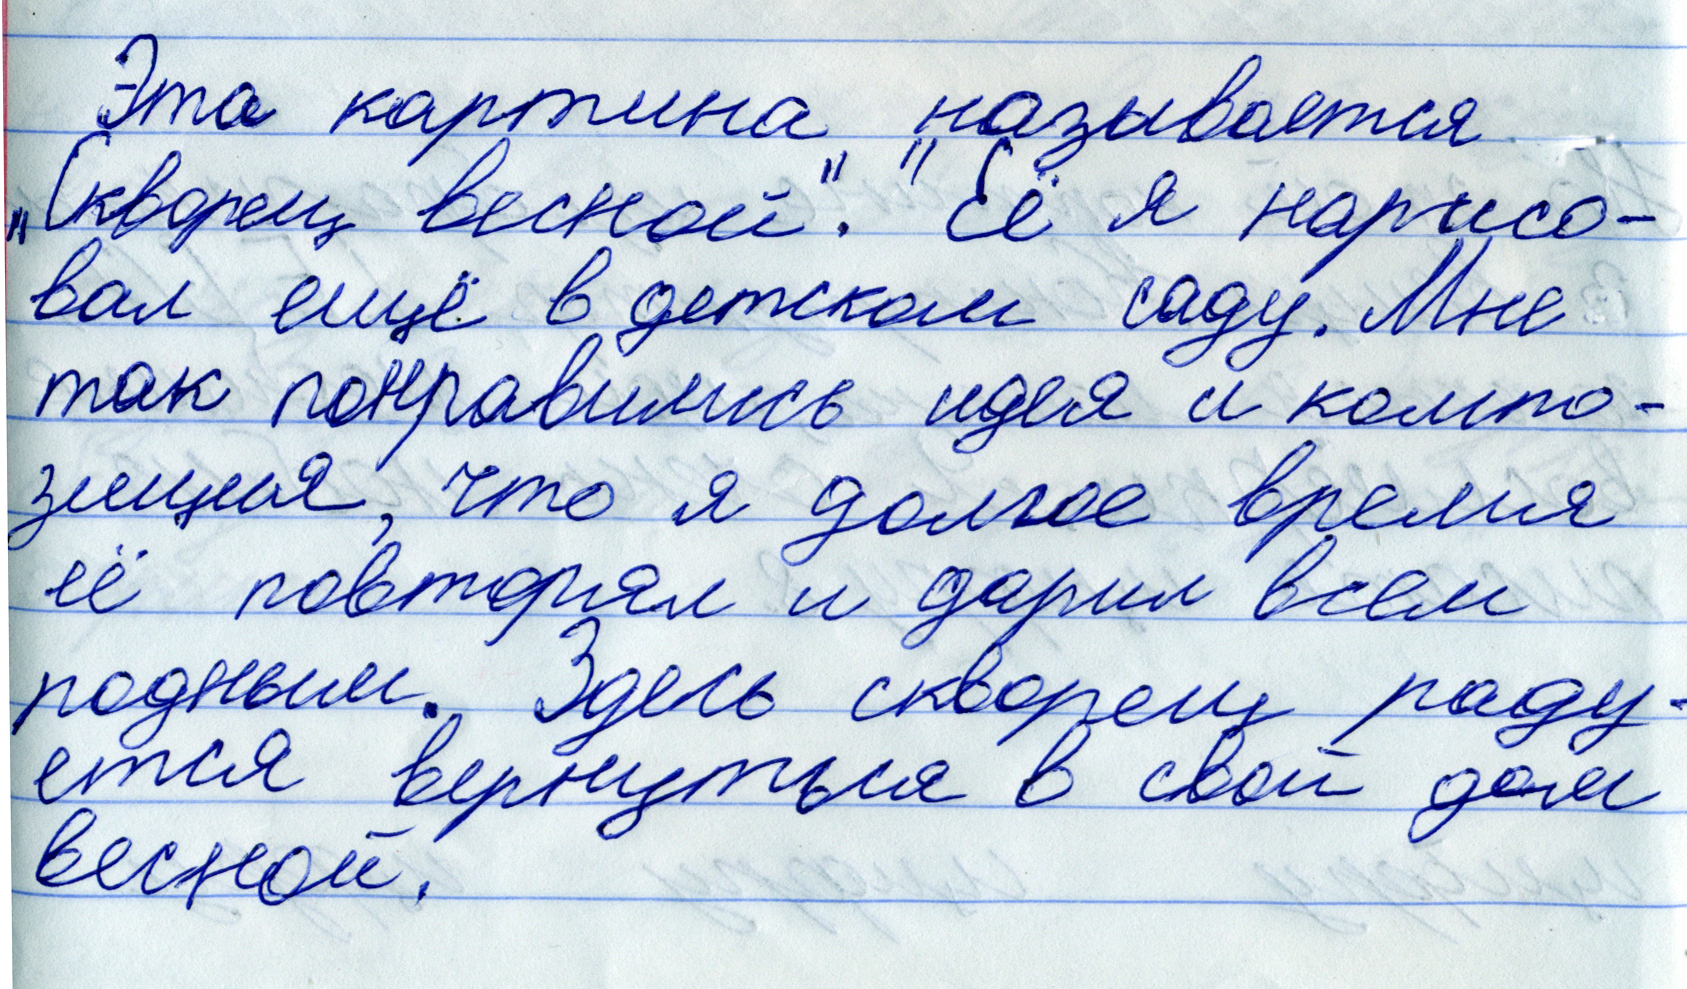 Эта картина называется
„Скворец весной". "Её я нарисо-
вал ещё в детском саду. Мне
так понравились идея и компо-
зиция, что я долгое время
её повторял и дарил всем
родным. Здесь скворец раду-
ется вернуться в свой дом
весной.